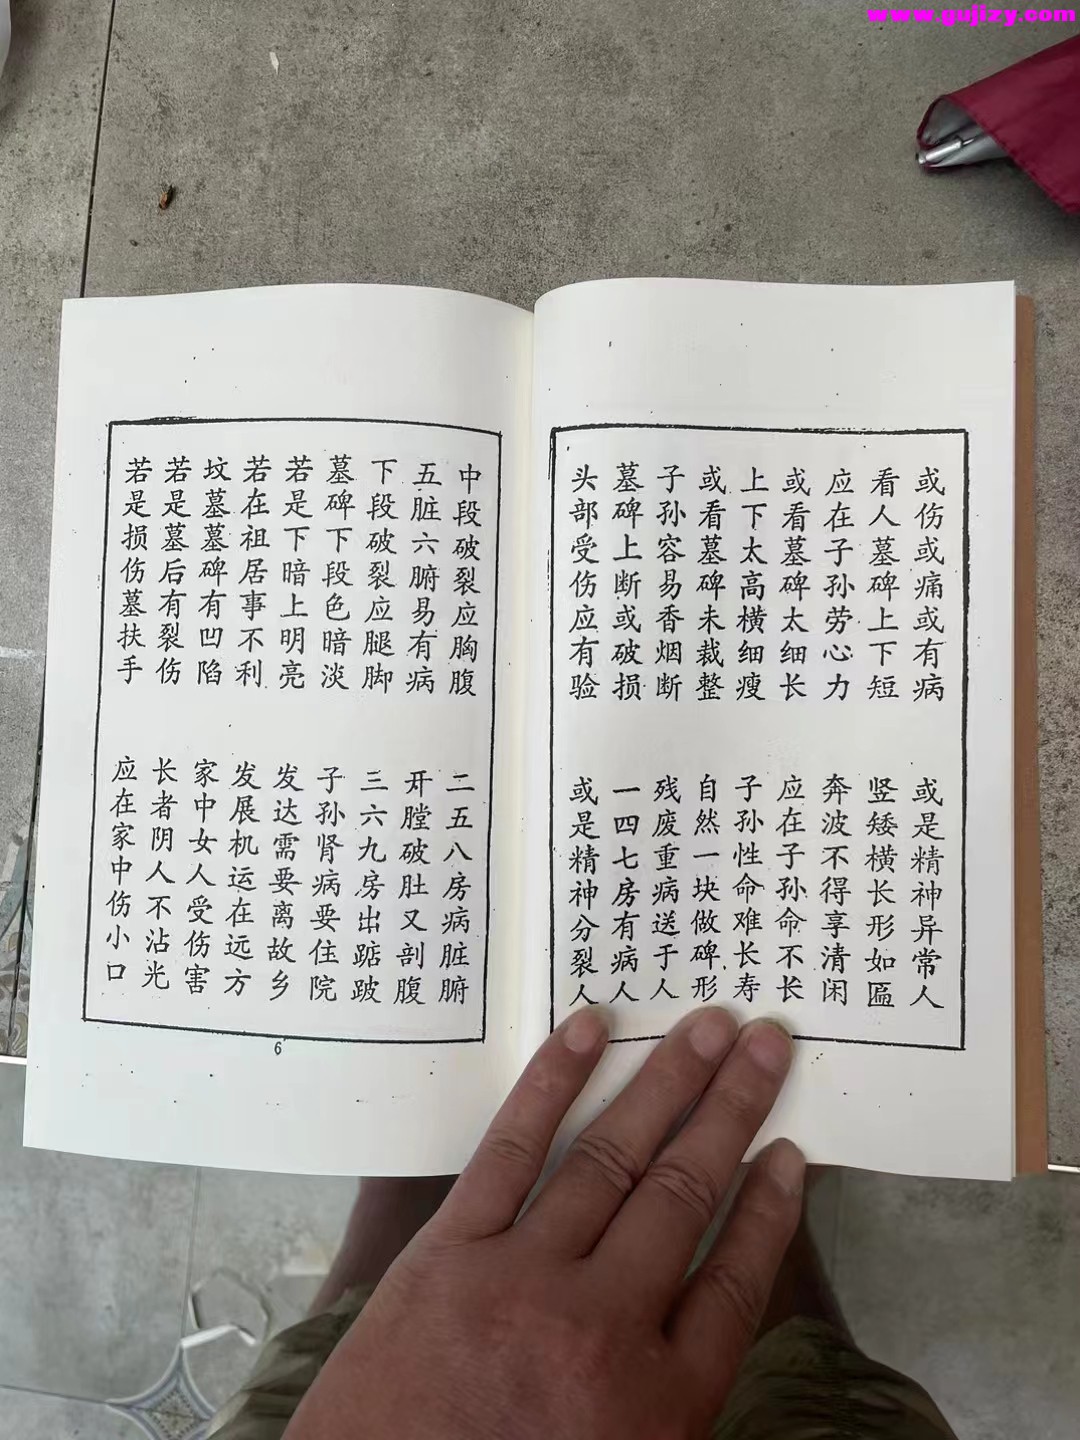 www.gujizy.com
或伤或痛或有病 或是精神异常人
看人墓碑上下短 竖矮横长形如匾
应在子孙劳心力 奔波不得享清闲
或看墓碑太细长 应在子孙命不长
上下太高横细瘦 子孙性命难长寿
或看墓碑未裁整 自然一块做碑形
子孙容易香烟断 残废重病送于人
墓碑上断或破损 一四七房有病人
头部受伤应有验 或是精神分裂人
中段破裂应胸腹 二五八房病脏腑
五脏六腑易有病 开膛破肚又剖腹
下段破裂应腿脚 三六九房出踮跛
墓碑下段色暗淡 子孙肾病要住院
若是下暗上明亮 发达需要离故乡
若在祖居事不利 发展机运在远方
坟墓墓碑有凹陷 家中女人受伤害
若是墓后有裂伤 长者阴人不沾光
若是损伤墓扶手 应在家中伤小口
6